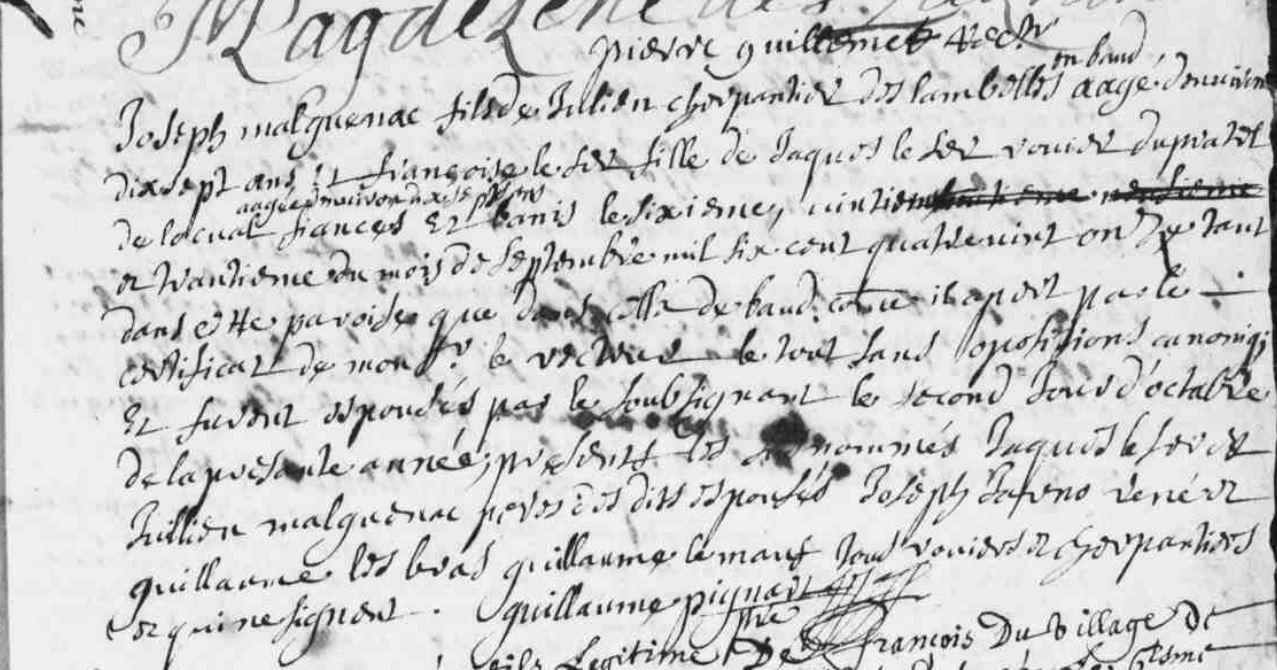 Magdelene des
pierre guillemet Recr
en baud
Joseph malguenac fils de Julien cherpantier des lambelles aagé d'enuiron
dix sept ans et françoise le fer fille de Jaques le fer rouier du pratel
aagee d'enuiron dix sept ans
de locual fiancés et banis le sixieme, vintieme
et trantieme du mois de septembre mil six cent quatre vint onze tant
dans cette paroisse que dans celle de baud, come il apert par le
certificat de monsr le recteur le tout sans opositions canoniqs
Et furent espousés par le soubsignant le second Jour d'octobre
de la presante année, presents les nommés Jaques le fer et
Jullien malguenac peres des dits espousés Joseph René et
guillaume les bras guillaume le mouf tous rouiers et cherpantiers
et qui ne signent. guillaume pignart
ptre
fils Legitime De françois Du village de